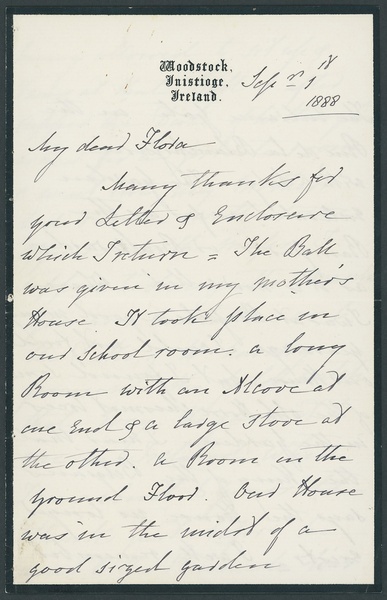 Woodstock,
Inistioge,
Ireland.
Sepr 1st
1888
My dear Flora
Many thanks for
your Letter & Enclosure
which I return = The Ball
was given in my mother's
House. It took place in
our school room. a long
Room with an Alcove at
one End & a large Stove at
the other. a Room on the
ground Floor. Our House
was in the midst of a
good sized garden